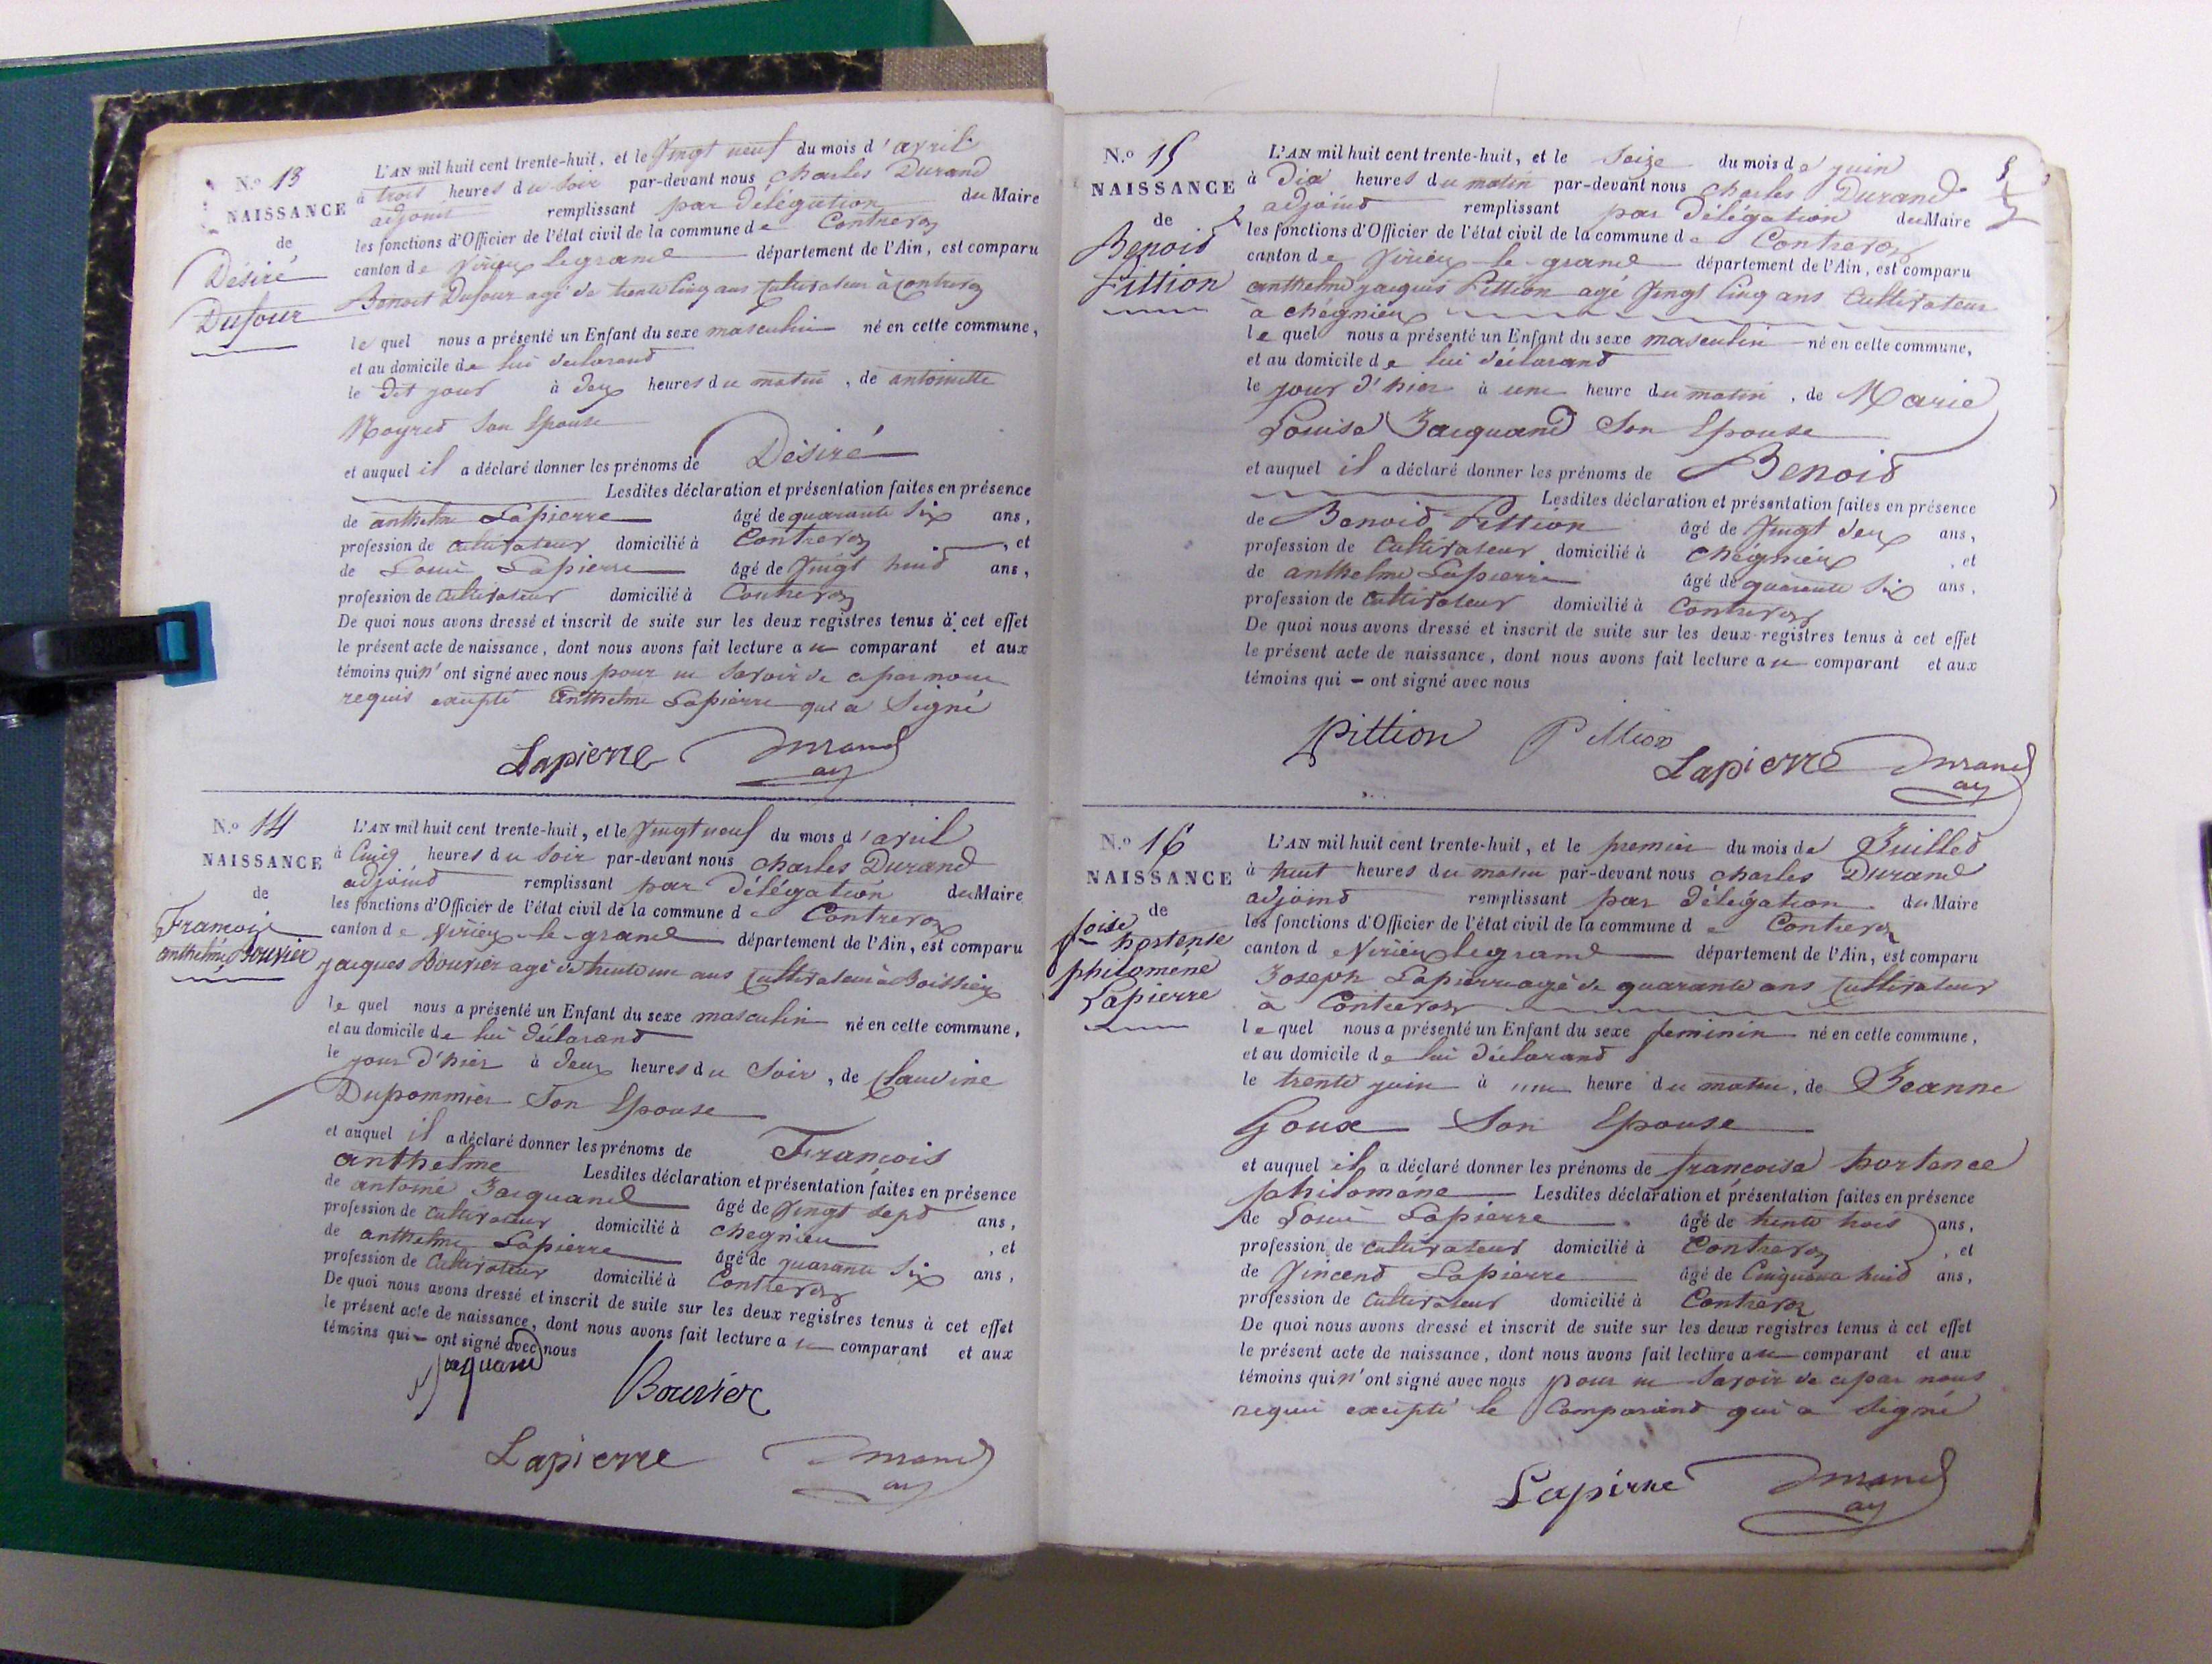 N.º 13
NAISSANCE
de
Désiré
Dufour
L'AN mil huit cent trente-huit, et le vingt neuf du mois d'avril
à trois heures du soir par-devant nous Charles Durand
adjoint remplissant par délégation du Maire
les fonctions d'Officier de l'état civil de la commune de Contrevoz
canton de Virieu le grand département de l'Ain, est comparu
Benoit Dufour agé de trente cinq ans Cultivateur à Contrevoz
le quel nous a présenté un Enfant du sexe masculin né en cette commune,
et au domicile de lui déclarant
le dit jour à deux heures du matin, de antoinette
son Epouse
et auquel il a déclaré donner les prénoms de Désiré
Lesdites déclaration et présentation faites en présence
de anthelme Lapierre âgé de quarante six ans,
profession de Cultivateur domicilié à Contrevoz, et
de Louis Lapierre âgé de vingt huit ans,
profession de Cultivateur domicilié à Contrevoz
De quoi nous avons dressé et inscrit de suite sur les deux registres tenus à cet effet
le présent acte de naissance, dont nous avons fait lecture au comparant et aux
témoins qui n'ont signé avec nous pour ne savoir de ce par nous
requis excepté anthelme Lapierre qui a signé
Lapierre Durand
adj
N.º 14
NAISSANCE
de
François
anthelme Bouvier
L'AN mil huit cent trente-huit, et le vingt neuf du mois d'avril
à Cinq heures du soir par-devant nous Charles Durand
adjoind remplissant par délégation du Maire
les fonctions d'Officier de l'état civil de la commune de Contrevoz
canton de Virieu-le-grand département de l'Ain, est comparu
jacques Bouvier agé de trente un ans Cultivateur à Boissieu
le quel nous a présenté un Enfant du sexe masculin né en cette commune,
et au domicile de lui déclarant
le jour d'hier à deux heures du soir, de Claudine
Dupommier Son Epouse
et auquel il a déclaré donner les prénoms de François
anthelme Lesdites déclaration et présentation faites en présence
de antoine Jacquand âgé de vingt sept ans,
profession de cultivateur domicilié à chegnieu, et
de anthelme Lapierre âgé de quarante six ans,
profession de Cultivateur domicilié à Contrevoz
De quoi nous avons dressé et inscrit de suite sur les deux registres tenus à cet effet
le présent acte de naissance, dont nous avons fait lecture au comparant et aux
témoins qui – ont signé avec nous
Jaquand Bouvier
Lapierre Durand
adj
N.º 15
NAISSANCE
de
Benoid
Pittion
L'AN mil huit cent trente-huit, et le seize du mois de juin
à Dix heures du matin par-devant nous Charles Durand
adjoind remplissant par délégation du Maire
les fonctions d'Officier de l'état civil de la commune de Contrevoz
canton de Virieu-le-grand département de l'Ain, est comparu
anthelme jacques Pittion agé vingt cinq ans Cultivateur
à chégnieu
le quel nous a présenté un Enfant du sexe masculin né en cette commune,
et au domicile de lui déclarand
le jour d'hier à une heure du matin, de Marie
Louise Jacquand Son Epouse
et auquel il a déclaré donner les prénoms de Benoid
Lesdites déclaration et présentation faites en présence
de Benoid Pittion âgé de vingt deux ans,
profession de Cultivateur domicilié à Chégnieu, et
de anthelme Lapierre âgé de quarante six ans,
profession de Cultivateur domicilié à Contrevoz
De quoi nous avons dressé et inscrit de suite sur les deux registres tenus à cet effet
le présent acte de naissance, dont nous avons fait lecture au comparant et aux
témoins qui – ont signé avec nous
Pittion Pittion
Lapierre Durand
adj
N.º 16
NAISSANCE
de
foise
hortense
philoméne
Lapierre
L'AN mil huit cent trente-huit, et le premier du mois de Juilled
à huit heures du matin par-devant nous Charles Durand
adjoind remplissant par délégation du Maire
les fonctions d'Officier de l'état civil de la commune de Contrevoz
canton d Virieu le grand département de l'Ain, est comparu
Joseph Lapierre agé de quarante ans Cultivateur
à Contrevoz
le quel nous a présenté un Enfant du sexe feminin né en cette commune,
et au domicile de lui déclarand
le trente juin à une heure du matin, de Jeanne
Goux Son Epouse
et auquel il a déclaré donner les prénoms de françoise hortence
philoméne Lesdites déclaration et présentation faites en présence
de Louis Lapierre âgé de trente trois ans,
profession de cultivateur domicilié à Contrevoz, et
de Vincend Lapierre âgé de Cinquante huid ans,
profession de Cultivateur domicilié à Contrevoz
De quoi nous avons dressé et inscrit de suite sur les deux registres tenus à cet effet
le présent acte de naissance, dont nous avons fait lecture au comparant et aux
témoins qui n'ont signé avec nous pour ne savoir de ce par nous
requis excepté le Comparand qui a signé
Lapierre Durand
adj